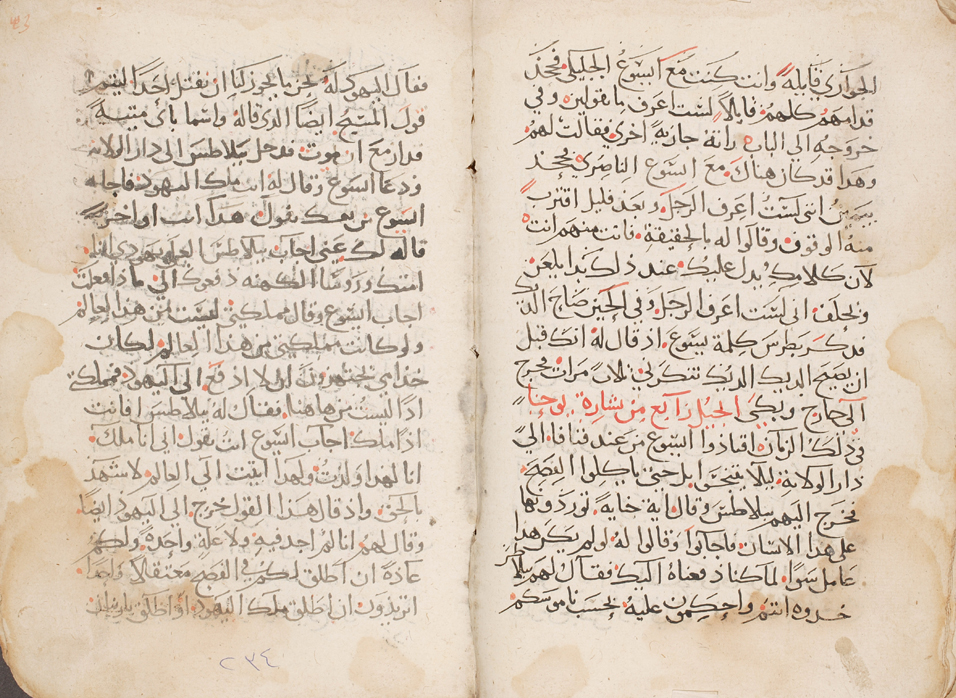 الجواري قايلة وانت كنت مع ايسوع الجليلي فجحد
قدامهم كلهم قايلاً لست اعرف ما تقولين وفي
خروجه الي الباب رأته جارية اخري فقالت لهم
وهدا قد كان هناك مع ايسوع الناصري فجحد
بيمين انني لست اعرف الرجل وبعد قليل اقترب
منه الوقوف وقالوا له بالحقيقة فانت منهم انت
لان كلامك يدل عليك عند ذلك بدا يلعن
ويحلف اني لست اعرف الرجل وفي الحين صاح الديك
فدكر بطرس كلمة يسوع اذ قال له انك قبل
ان يصيح الديك تنكرني ثلاث مرات فخرج
الي خارج وبكي الجيل رابع من بشارة يوحنا
في ذلك الزمان اقتادوا ايسوع من عند قيافا الي
دار الولاية ليلا يتنجسوا بل حتي ياكلوا الفصح
فخرج اليهم بيلاطس وقال اية جناية توردونها
على هدا الانسان فاجابوا وقالوا له لو لم يكن هدا
عامل سوا لما كنا دفعناه اليك فقال لهم بيلاطس
خدوه انتم واحكمون عليه بحسب ناموسكم
فقال اليهود له نحن ما يجوز لنا ان نقتل احدا ليتم
قول المسيح ايضا الذي قاله واسما باي ميتة
مزمع ان يموت فدخل بيلاطس الي دار الولاية
ودعا ايسوع وقال له انت ملك اليهود فاجابه
ايسوع من نفسك تقول هدا انت او اخر
قاله لك عني اجاب بيلاطس العلي يهودي انا
امتك وروسا الكهنه دفعوك الي ما دا فعلت
اجاب ايسوع وقال مملكتي ليست من هدا العالم
ولو كانت مملكتي من هدا العالم لكان
خدامي يجتهدون ان لا ادفع الي اليهود فمملكتي
اذا ليست من هاهنا فقال له بيلاطس افانت
اذا ملك اجاب ايسوع انت تقول اني انا ملك
انا لهدا ولدت ولهدا اتيت الي العالم لاشهد
بالحق واذ قال هدا القول خرج الي اليهود ايضا
وقال لهم انا لم اجد فيه ولا علة واحدة ولكم
عادة ان اطلق لكم في الفصح معتقلا واحدا
اتريدون ان اطلق ملك اليهود
٢٣٤